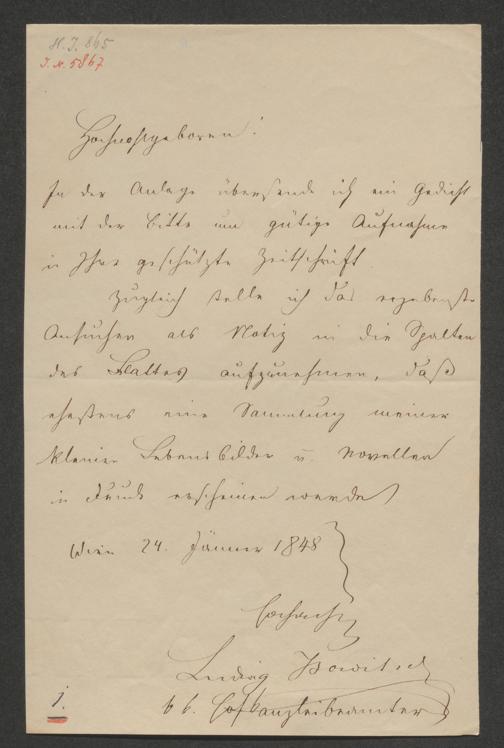 H. I. 865
I. N. 5867
Hochwohlgeboren!
In der Anlage übersende ich ein Gedicht
mit der Bitte um gütige Aufnahme
in Ihre geschützte Zeitschrift.
Zugleich stelle ich das ergebenste
Ansuchen als Notiz in die Spalten
des Blattes aufzunehmen, daß
ehestens eine Sammlung meiner
kleinen Lebensbilder u. Novellen
in Druck erscheinen werde
Wien 24. Jänner 1848
Ludwig
k k. Hofkanzleibeamter
1.